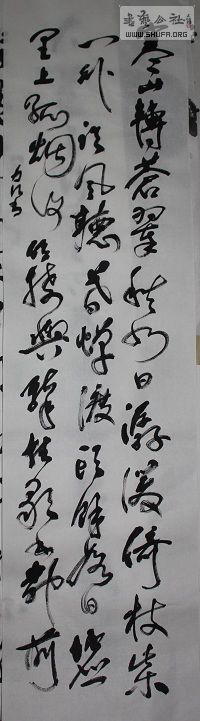 書藝公社
WWW.SHUFA.ORG
寒山轉蒼翠秋水日潺湲倚杖柴
門外臨風聽暮蟬渡頭餘落日墟
里上孤烟復值接輿醉狂歌五柳前